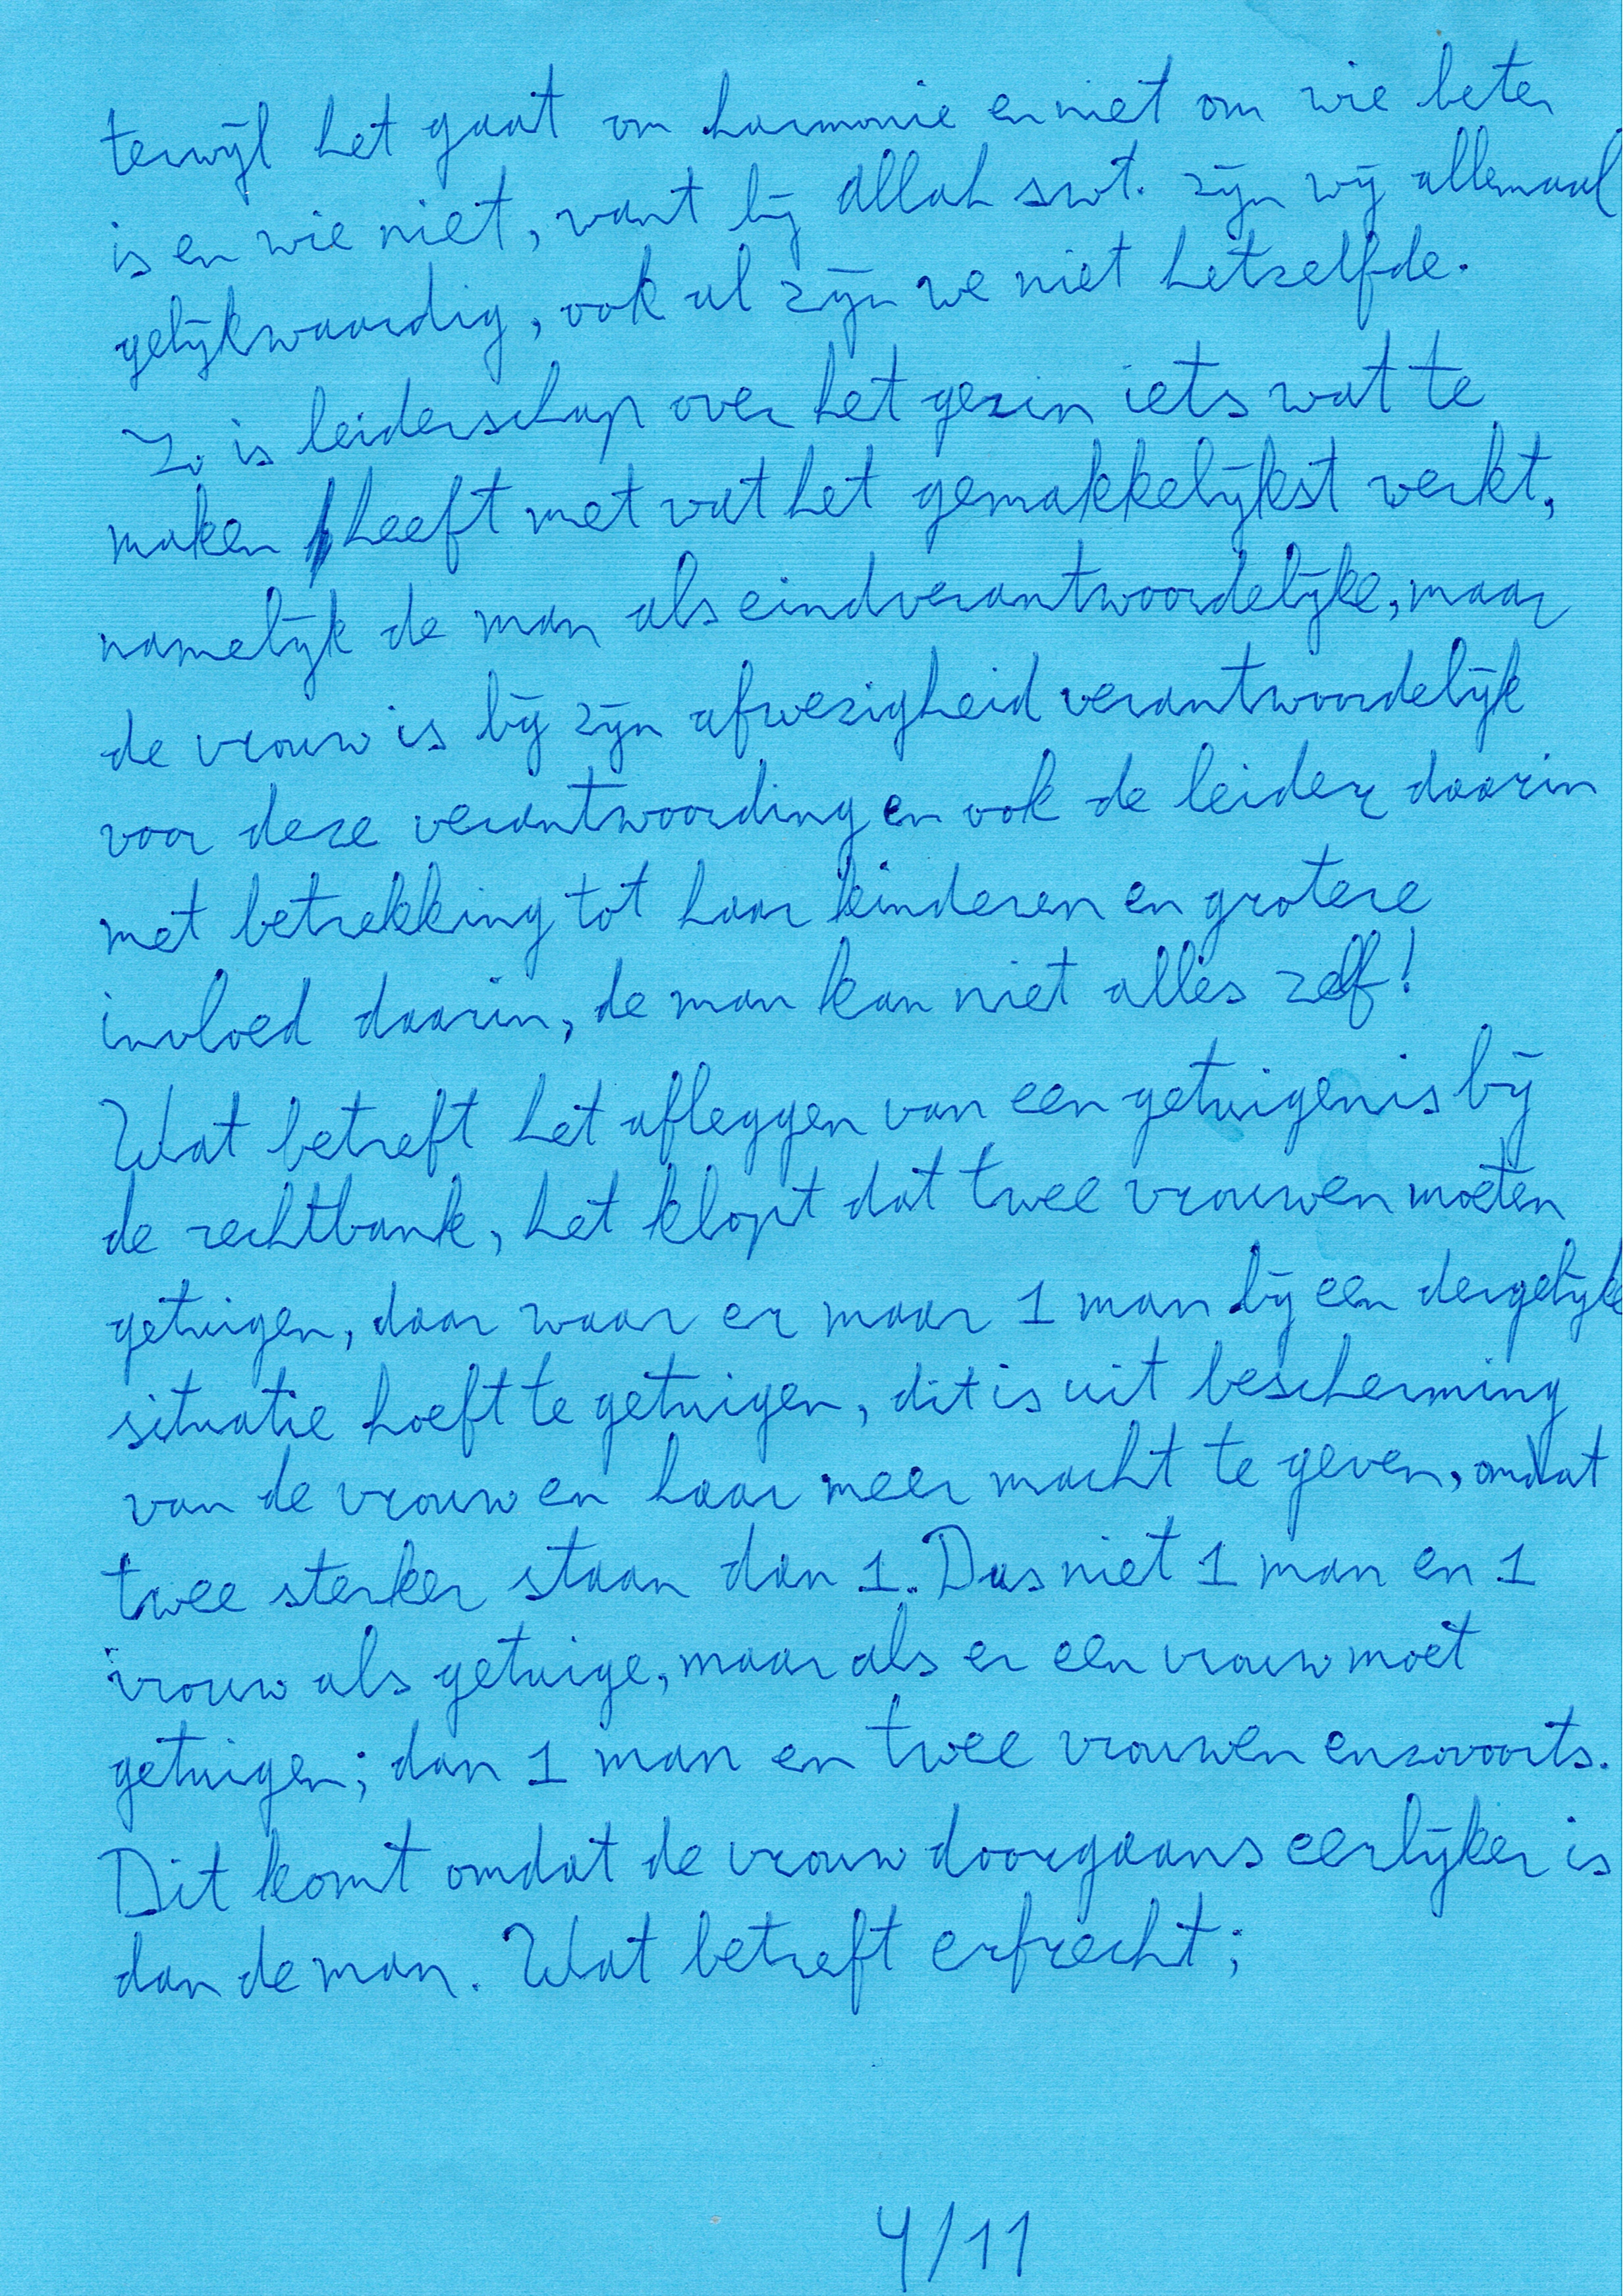 terwijl het gaat om harmonie en niet om wie beter
is en wie niet, want bij Allah swt. zijn wij allemaal
gelijkwaardig, ook al zijn we niet hetzelfde.
Zo is leiderschap over het gezin iets wat te
maken heeft met wat het gemakkelijkst werkt,
namelijk de man als eindverantwoordelijke, maar
de vrouw is bij zijn afwezigheid verantwoordelijk
voor deze verantwoording en ook de leider daarin
met betrekking tot haar kinderen en grotere
invloed daarin, de man kan niet alles zelf!
Wat betreft het afleggen van een getuigenis bij
de rechtbank, het klopt dat twee vrouwen moeten
getuigen, daar waar er maar 1 man bij een dergelijke
situatie hoeft te getuigen, dit is uit bescherming
van de vrouw en haar meer macht te geven, omdat
twee sterker staan dan 1. Dus niet 1 man en 1
vrouw als getuige, maar als er een vrouw moet
getuigen; dan 1 man en twee vrouwen enzovoorts.
Dit komt omdat de vrouw doorgaans eerlijker is
dan de man. Wat betreft erfrecht;
4/11